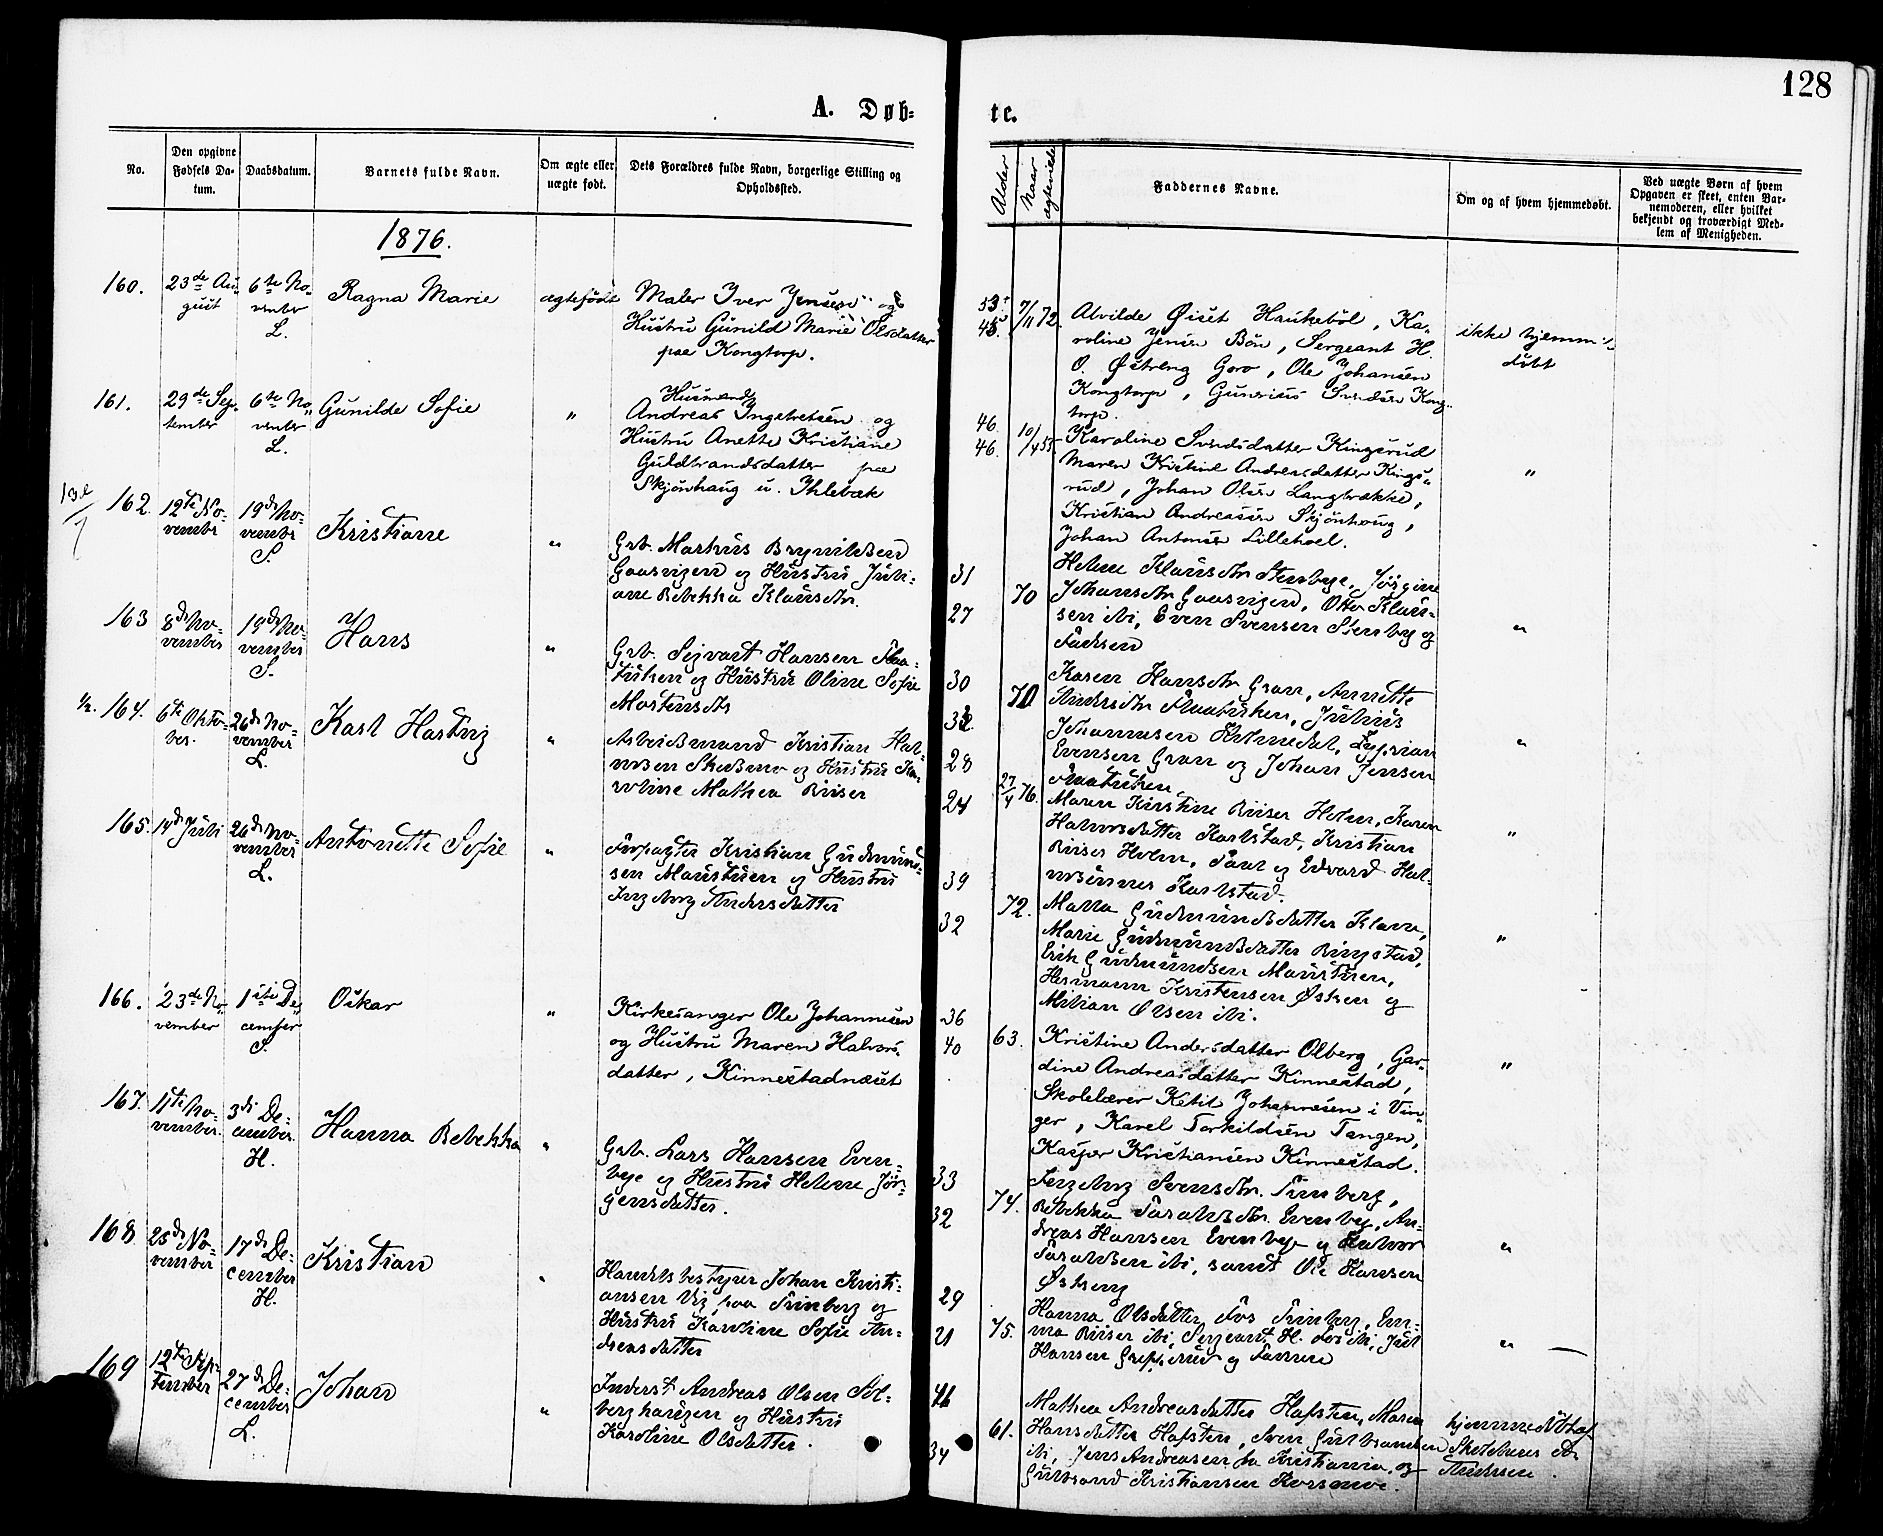 128
A. Døb=
te.
No.
Den opgivne Fødsels Datum.
Daabsdatum.
Barnets fulde Navn.
Om ægte eller uægte født.
Dets Forældres fulde Navn, borgerlige Stilling og Opholdssted.
Alder
Naar ægteviede
Faddernes Navne.
Om og af hvem hjemmedøbt.
Ved uægte Børn af hvem Opgaven er skeet, enten Barnemoderen, eller hvilket bekjendt og troværdigt Medlem af Menigheden.
1876.
160.
23de Au-
gust
6te No-
vember
L.
Ragna Marie
ægtefödt
Maler Iver Jensen og
Hustru Gunild Marie Olsdatter
paa Kongtorp.
45.
7/11 72.
Alvilde Öiset Haukeböl, Ka-
roline Jensen Bön, Sergeant H.
O. Östreng Goro, Ole Johansen
Kongtorp, Gunerius Svendsen Kong-
torp.
ikke hjemme-
döbt
161.
29de Sep-
tember
6te No-
vember
L.
Gunilde Sofie
"
Husmand
Andreas Ingebretsen og
Hustru Anette Kristiane
Guldbrandsdatter paa
Skjönhaug u. Ihlebæk
46.
46.
10/4 55.
Karoline Svendsdatter Kingsrud
Maren Kristine Andreasdatter Kings-
rud, Johan Olsen Langbrække,
Kristian Andreassen Skjönhaug,
Johan Antonsen Lillehoel.
"
162.
12te No-
vember
19de No-
vember
S.
Kristiane
"
Grb. Markus Brynildsen
Gaasvigen og Hustru Juli-
ane Rebekka Klausdtr.
31
27
70
Helene Klausdtr Stenbye, Jörgine
Johansdtr Gaasvigen, Otto Klau-
sen ibi, Even Svensen Stenbye og
Faderen
"
163
8de No-
vember
19de No-
vember
S.
Hans
"
Grb. Sigvart Hansen Flaa-
tusen og Hustru Oline Sofie
Martinsdtr
30
32.
70
Karen Hansdtr Gran, Annette
Andersdtr Flaatusen, Julius
Johannesen Holmedal, Syprian
Evensen Gran og Johan Jensen
Flaatusen.
"
1/2. 164.
6te Okto-
ber.
26de No-
vember
L.
Karl Hartvig
"
Arbeidsmand Kristian Hal-
vorsen Skudsmo og Hustru Ka-
roline Mathea Riiser
28
24
27/4 76.
Maren Kirstine Riiser Holm, Karen
Halvorsdatter Karlstad, Kristian
Riiser Holm, Paul og Edvard Hal-
vorsønner Karlstad.
"
165.
14de Juli
26de No-
vember
L.
Antonette Sofie
"
Forpagter Kristian Gudmund-
sen Maustuen og Hustru
Ingeborg Andersdatter
39
32
72.
Matta Gudmundsdatter Klave,
Marie Gudmundsdatter Ringstad,
Erik Gudmundsen Maustuen,
Hermann Kristensen Østeren og
Milian Olsen ibi.
"
166.
23de No-
vember
1ste De-
cember
S.
Oskar
"
Kirkesanger Ole Johannesen
og Hustru Maren Halvors-
datter, Kinnestadnæset
36
40
63.
Kristine Andersdatter Olberg, Gar-
dine Andreasdatter Kinnestad,
Skolelærer Ketil Johannesen i Vin-
ger, Karel Torkildsen Tangen,
Kasper Kristiansen Kinnestad.
"
167.
11te No-
vember.
3die De-
cember.
H.
Hanna Rebekka
"
Grb. Lars Hansen Even-
bye og Hustru Helene Jør-
gensdatter.
33
32
74.
Ingeborg Svensdtr. Finberg,
Rebekka Taraldsdtr. Evenbye, An-
dreas Hansen Evenbye og Halvor
Taraldsen ibi, samt Ole Hansen
Østreng
"
168
25de No-
vember
17de De-
cember
H.
Kristian
"
Handelsbestyrer Johan Kristi-
ansen Vig paa Finberg og
Hustru Karoline Sofie An-
dreasdatter
29
21
75.
Hanna Olsdatter Fos Finberg, Em-
ma Riiser ibi, Sergeant H. Fos ibi, Juul
Hansen Grefsrud og Faderen
"
169
12te Sep-
tember
27de De-
cember
L.
Johan
"
Inderst Andreas Olsen Sol-
berghaugen og Hustru
Karoline Olsdatter.
34
61.
Mathea Andreasdatter Hafsten, Maren
Hansdatter Hafsten, Sven Gulbrandsen
ibi, Jens Andreasen fra Kristiania, og
Gulbrand Kristiansen Korsmoe.
hjemmedöbt af
Skolelærer
Andersen.